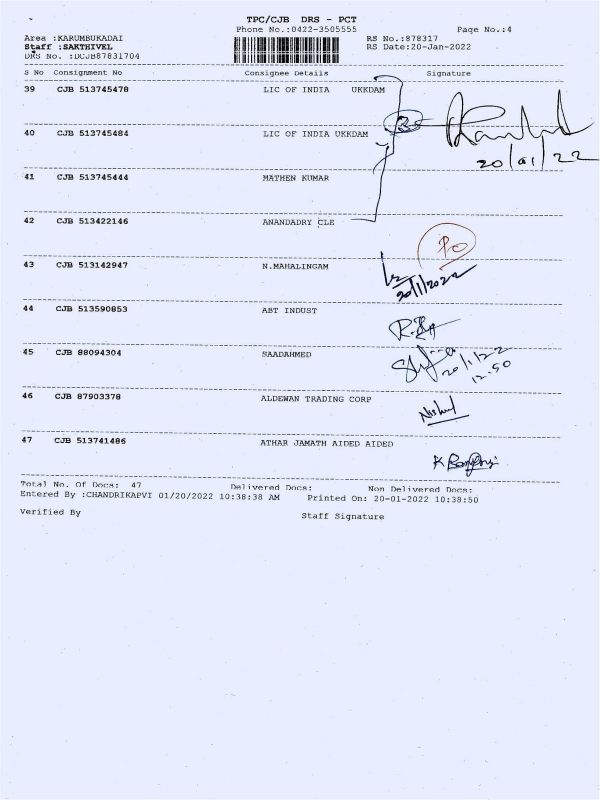 TPC/CJB DRS - PCT
Phone No.:0422-3505555
Page No.:4
Area :KARUMBUKADAI
RS No.:878317
Staff :SAKTHIVEL
RS Date:20-Jan-2022
DRS No. :DCJB87831704
S No Consignment No Consignee Details Signature
39 CJB 513745478 LIC OF INDIA UKKDAM
40 CJB 513745484 LIC OF INDIA UKKDAM
20/01/22
41 CJB 513745444 MATHEN KUMAR
42 CJB 513422146 ANANDADRY CLE
43 CJB 513142947 N.MAHALINGAM
20/1/2022
44 CJB 513590853 ABT INDUST
45 CJB 88094304 SAADAHMED
20/1/22
12.50
46 CJB 87903378 ALDEWAN TRADING CORP
47 CJB 513741486 ATHAR JAMATH AIDED AIDED
Total No. Of Docs: 47 Delivered Docs: Non Delivered Docs:
Entered By :CHANDRIKAPVI 01/20/2022 10:38:38 AM Printed On: 20-01-2022 10:38:50
Verified By Staff Signature